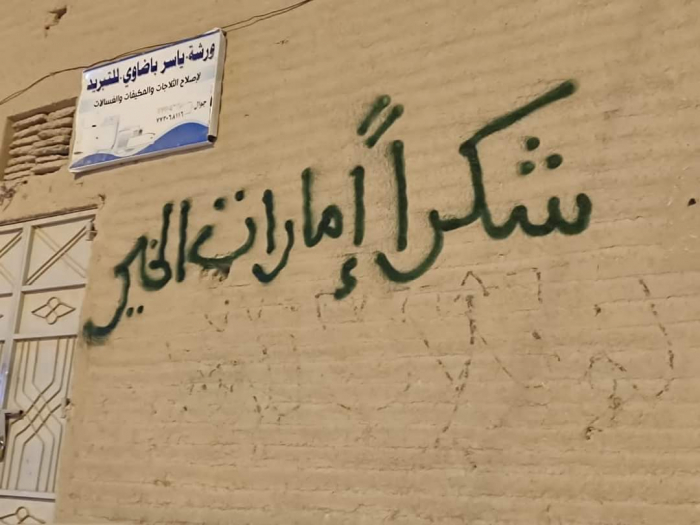 ورشة ياسر باضاوي للتبريد
لإصلاح الثلاجات والمكيفات والغسالات
جوال
شكراً إمارات الخير